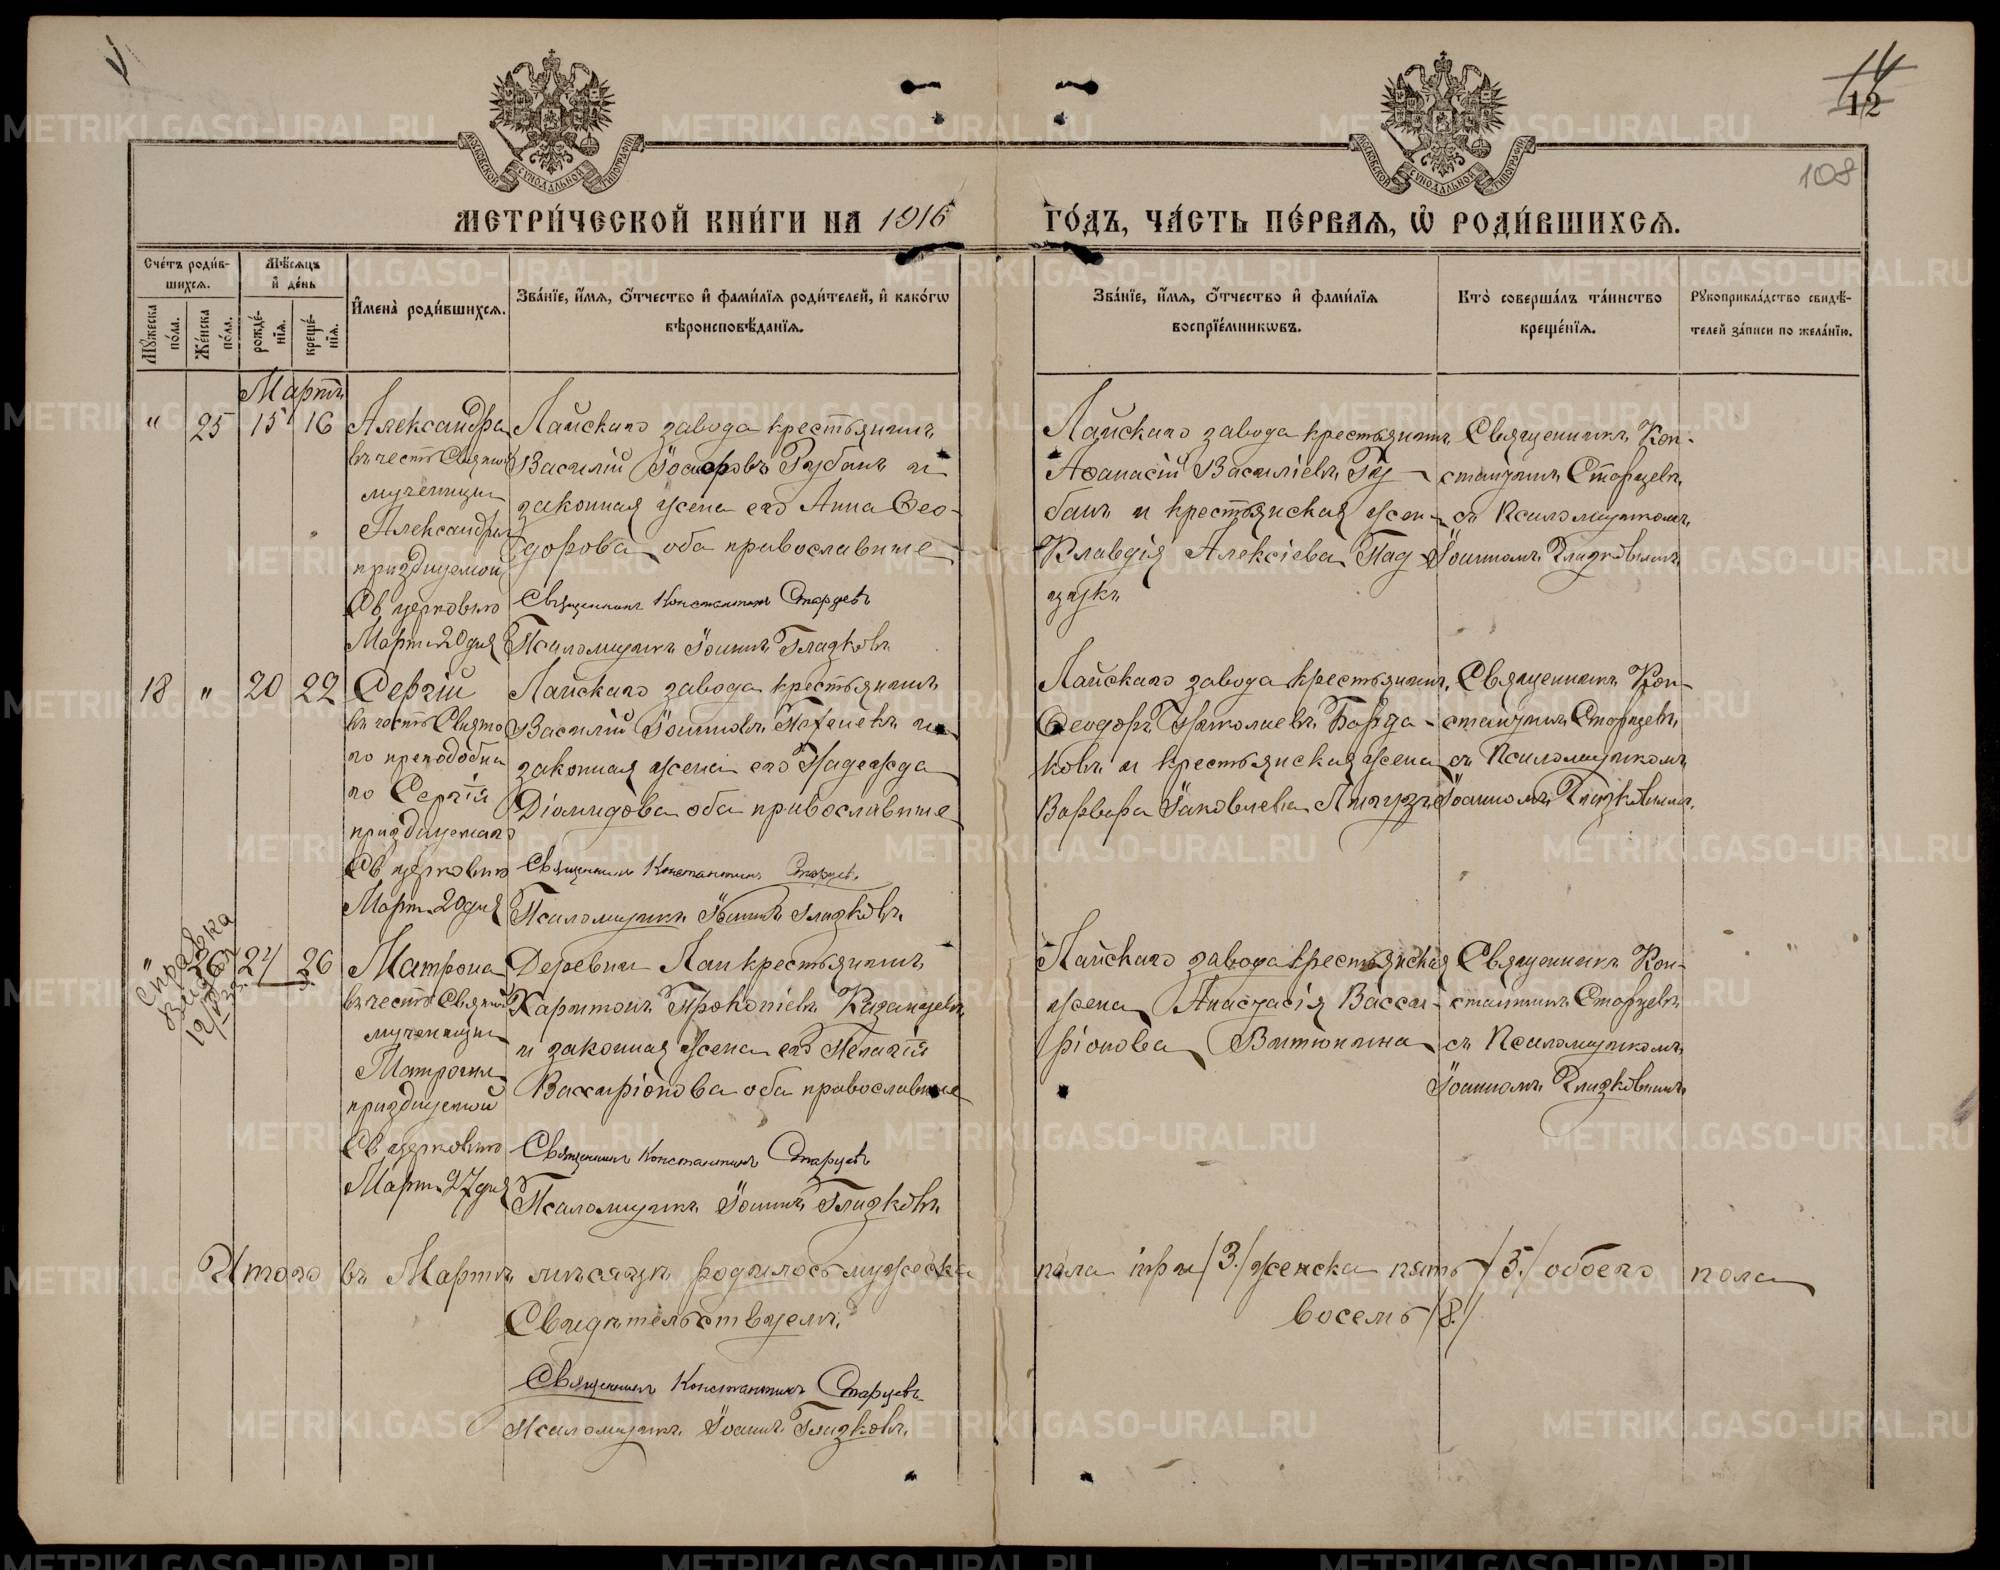 14
12
108
МОСКОВСКОЙ СУНОДАЛЬНОЙ ТИПОГРАФІИ
МОСКОВСКОЙ СУНОДАЛЬНОЙ ТИПОГРАФІИ
МЕТРИ́ЧЕСКОЙ КНИ́ГИ НА 1916 ГО́ДЪ, ЧА́СТЬ ПЕ́РВАЯ, Ѡ҆ РОДИ́ВШИХСЯ.
Сче́тъ роди́вшихся.
Мꙋ́жеска по́ла.
Же́нска по́ла.
Мѣ́сяцъ и҆ де́нь
рожде́нїя.
креще́нїя.
И҆мена̀ роди́вшихся.
Зва́нїе, и҆́мя, ѻ҆́тчество и҆ фами́лїя роди́телей, и҆ како́гѡ
вѣроисповѣ́данїя.
Зва́нїе, и҆́мя, ѻ҆́тчество и҆ фами́лїя
воспрїе́мникѡвъ.
Кто̀ соверша́лъ та́инство
креще́нїя.
Рꙋкоприкла́дство свидѣ́-
телей за́писи по жела́нїю.
Мартъ
" 25 15 16
Александра
въ честь Святой
мученицы
Александры
празднуемой
Св церковью
Март. 20 дня
Лайскаго завода крестьянинъ
Василій Іосифовъ Губанъ и
законная жена его Анна Ѳео-
дорова оба православные
Священникъ Константинъ Старцевъ
Псаломщикъ Іоаннъ Гладковъ
Лайскаго завода крестьянинъ
Аѳанасій Василіевъ Гу-
банъ и крестьянская жен-
Клавдія Алексіева Пад-
Священникъ Кон-
стантинъ Старцевъ
съ Псаломщикомъ
Іоанномъ Гладковымъ
18 " 20 22
Сергій
въ честь Свято
го преподобна
го Сергія
празднуемаго
Св церковью
Март. 20 дня
Лайскаго завода крестьянинъ
Василій Іоанновъ и
законная жена его Надежда
Діомидова оба православные
Священникъ Константинъ Старцевъ
Псаломщикъ Іоаннъ Гладковъ
Лайскаго завода крестьянинъ
Ѳеодоръ Николаевъ
ковъ и крестьянская жена
Варвара Іаковлева
Священникъ Кон-
стантинъ Старцевъ
съ Псаломщикомъ
Іоанномъ Гладковымъ
Справка
" 26 24 26
Матрона
въ честь Святой
мученицы
Матроны
празднуемой
Св церковью
Март. 27 дня
Деревни Лаи крестьянинъ
Харитонъ Прокопіевъ Казанцевъ
и законная жена его Пелагія
Вассиріонова оба православные
Священникъ Константинъ Старцевъ
Псаломщикъ Іоаннъ Гладковъ
Лайскаго завода крестьянская
жена Анастасія Васса-
ріонова Ватюнина
Священникъ Кон-
стантинъ Старцевъ
съ Псаломщикомъ
Іоанномъ Гладковымъ
Итого въ Мартѣ мѣсяцѣ родилось мужеска пола три /3./ женска пять /5./ обоего пола
восемь /8./
Свидѣтельствуемъ:
Священникъ Константинъ Старцевъ
Псаломщикъ Іоаннъ Гладковъ.
METRIKI.GASO-URAL.RU